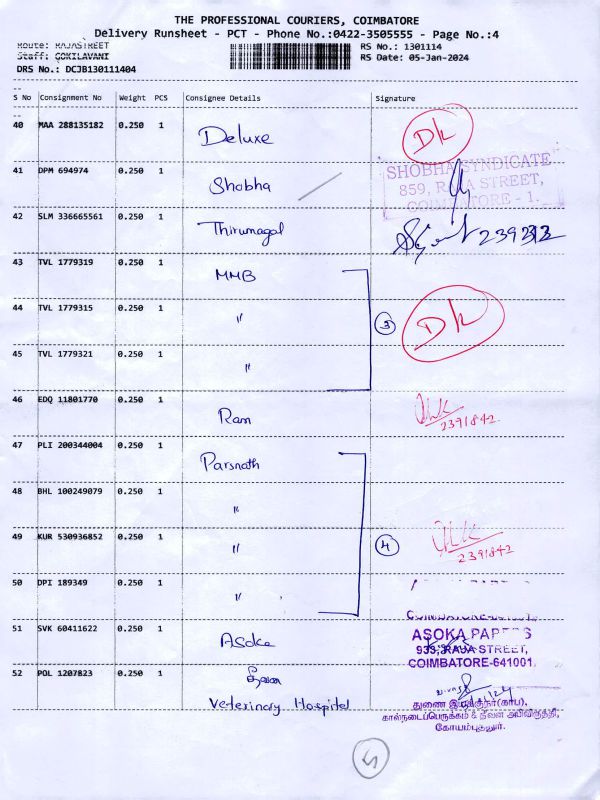 THE PROFESSIONAL COURIERS, COIMBATORE
Delivery Runsheet - PCT - Phone No.:0422-3505555 - Page No.:4
Route: RAJASTREET RS No.: 1301114
Staff: GOKILAVANI RS Date: 05-Jan-2024
DRS No.: DCJB130111404
S No Consignment No Weight PCS Consignee Details Signature
40 MAA 288135182 0.250 1 Deluxe DK
41 DPM 694974 0.250 1 Shobha
SHOBHA SYNDICATE
859, RAJA STREET,
COIMBATORE - 1.
42 SLM 336665561 0.250 1 Thirumagal
43 TVL 1779319 0.250 1 MMB
44 TVL 1779315 0.250 1 " 3 DK
45 TVL 1779321 0.250 1 "
46 EDQ 11801770 0.250 1 Ram 2391842
47 PLI 200344004 0.250 1 Parsnath
48 BHL 100249079 0.250 1 "
49 KUR 530936852 0.250 1 " 4 2391842
50 DPI 189349 0.250 1 "
51 SVK 60411622 0.250 1 Asoka
ASOKA PAPERS
939, RAJA STREET,
COIMBATORE-641001.
52 POL 1207823 0.250 1
Veterinary Hospital
துணை இயக்குநர்(காப),
கால்நடைப்பெருக்கம் & தீவன அபிவிருத்தி,
கோயம்புத்தூர்.
5